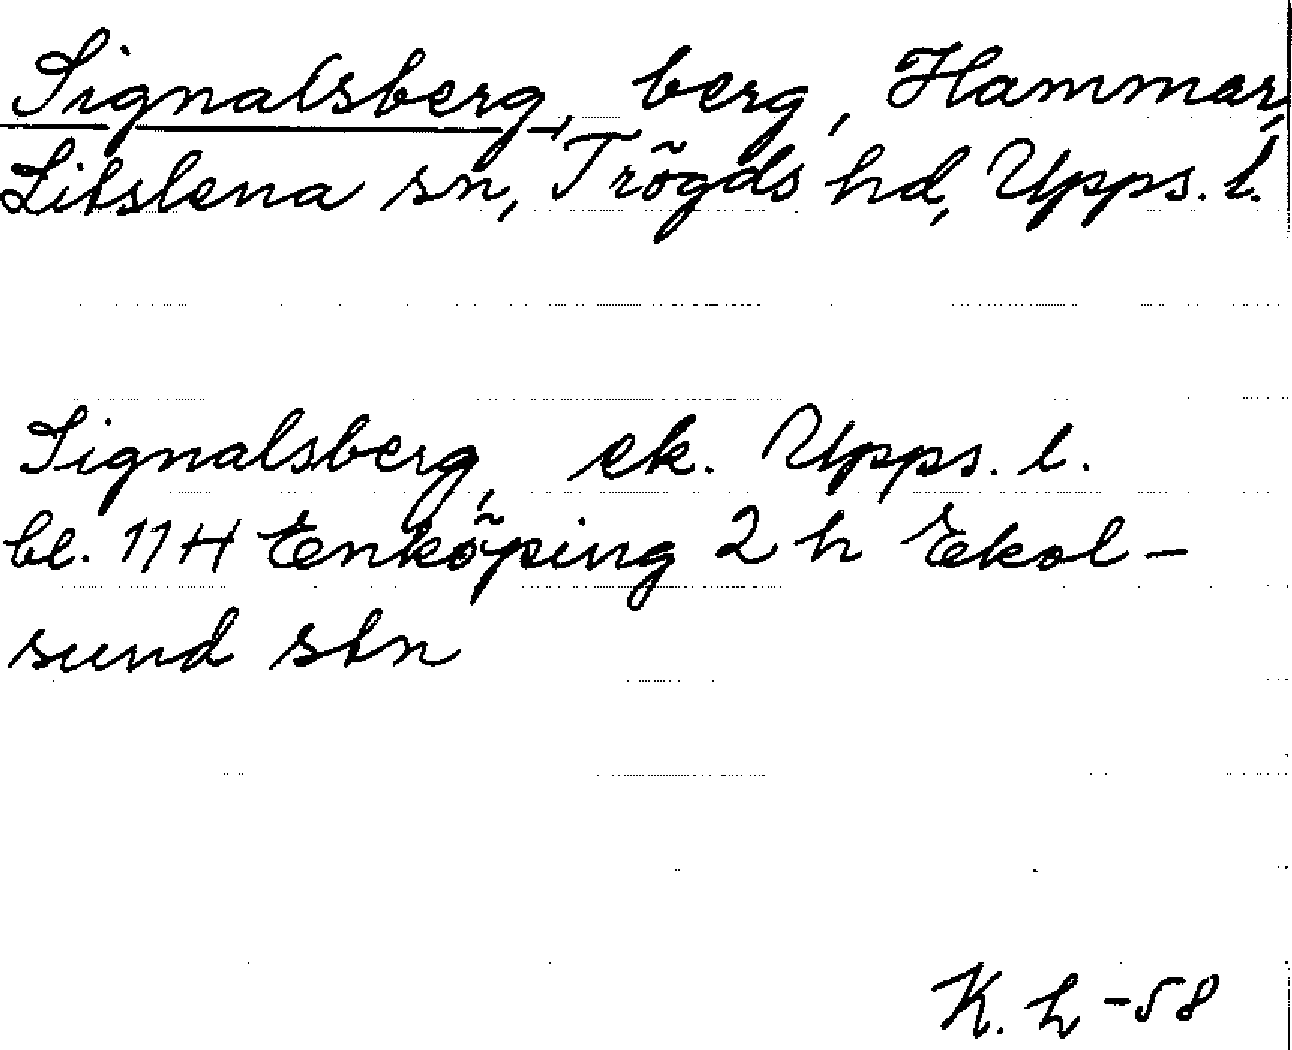 Signalsberg, berg, Hammar,
Litslena sn, Trögds hd, Upps. l.
Signalsberg, ek. Upps. l.
bl. 11H Enköping 2 h Ekol-
sund stn
K. h -58